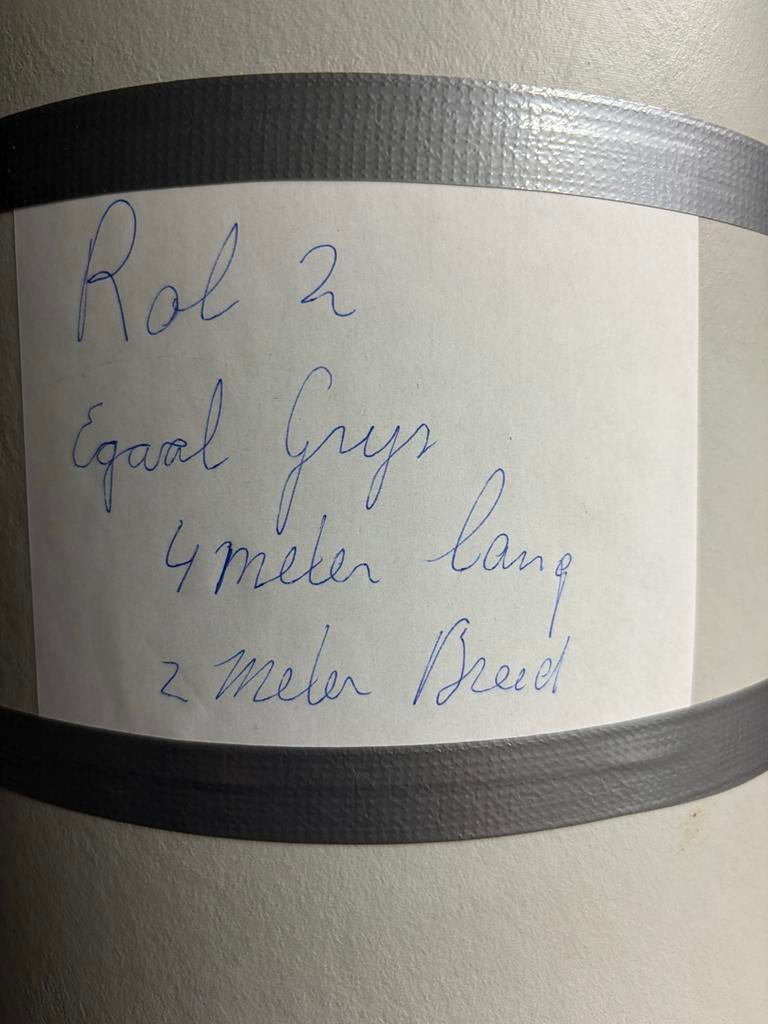 Rol 2
Egaal Grijs
4 meter lang
2 meter Breed